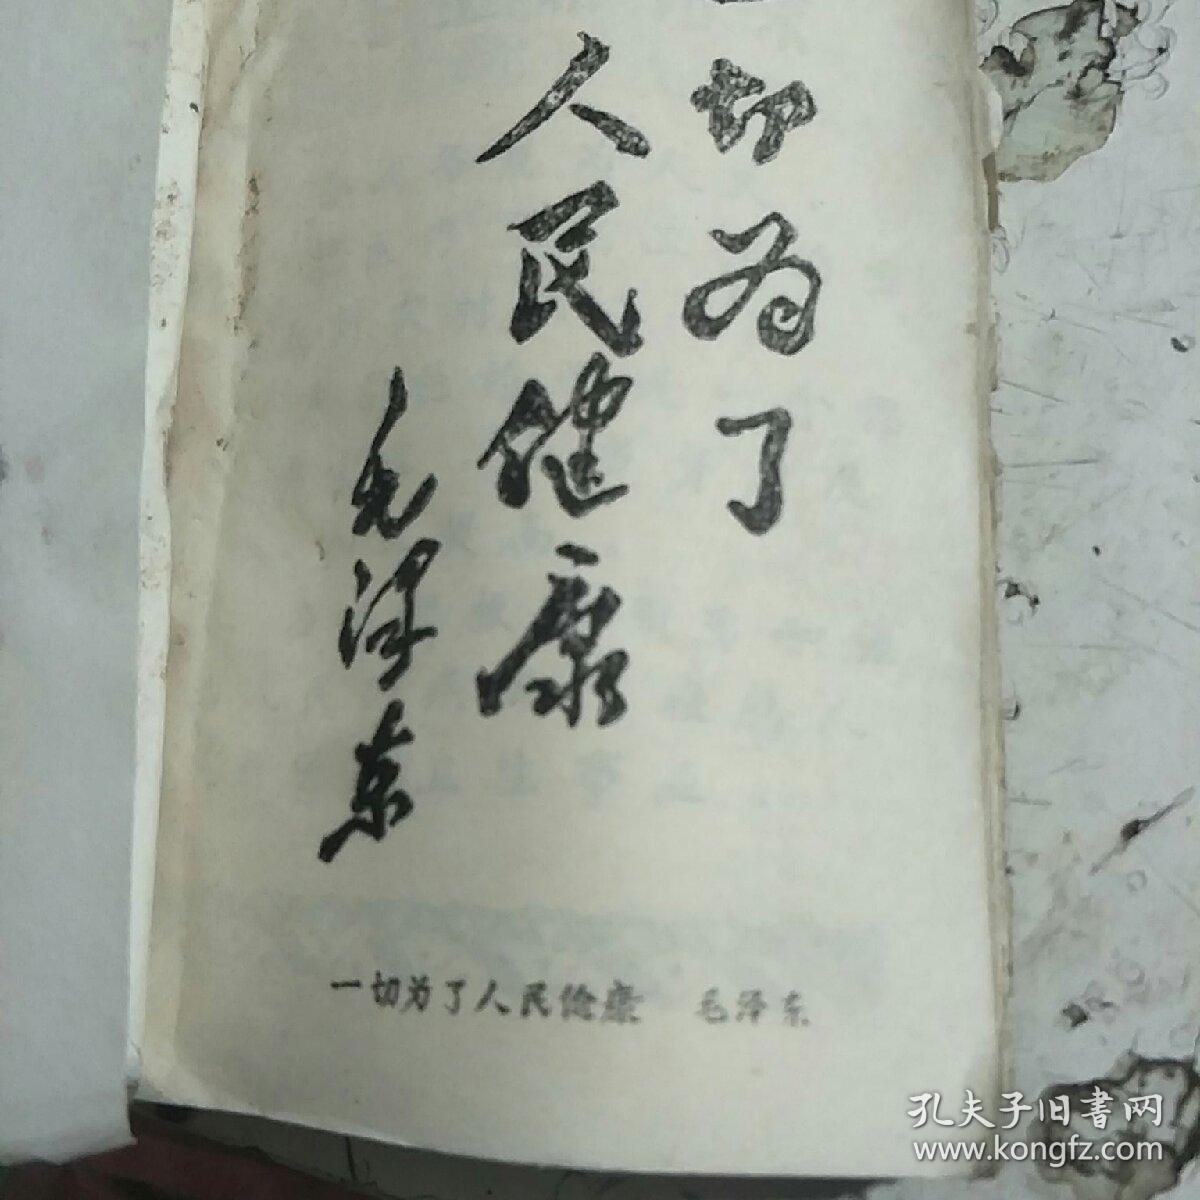 一切为了
人民健康
毛泽东
一切为了人民健康 毛泽东
孔夫子旧书网
www.kongfz.com